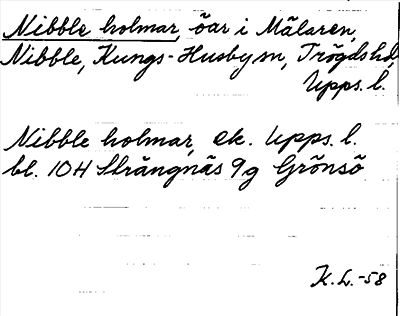 Nibble holmar, öar i Mälaren,
Nibble, Kungs-Husby sn, Trögds hd,
Upps. l.
Nibble holmar, ek. Upps. l.
bl. 10H Strängnäs 9g Grönsö
K.L.-58